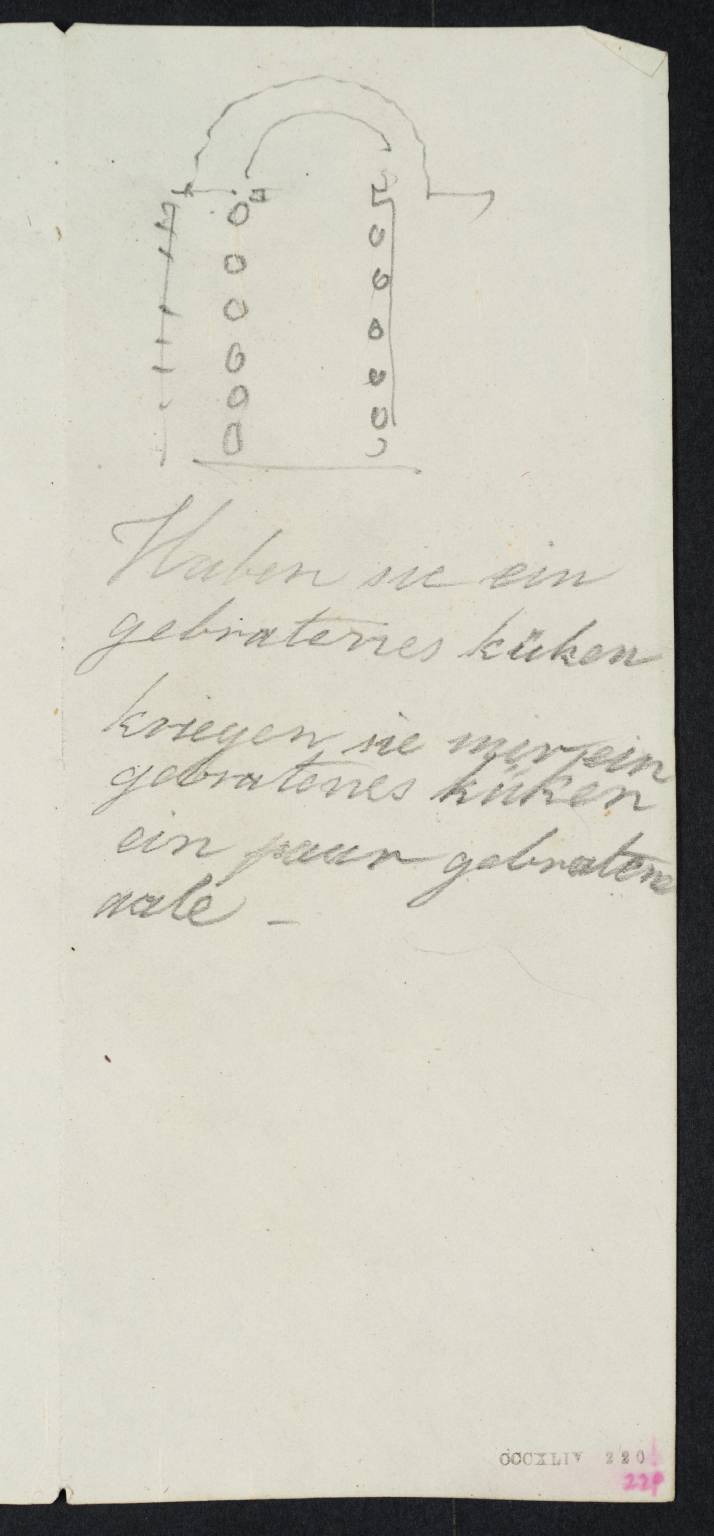 Haben sie ein
gebratenes küken
kriegen sie mir ein
gebratenes küken
ein paar gebratene
aale –
CCCXLIV 220
229